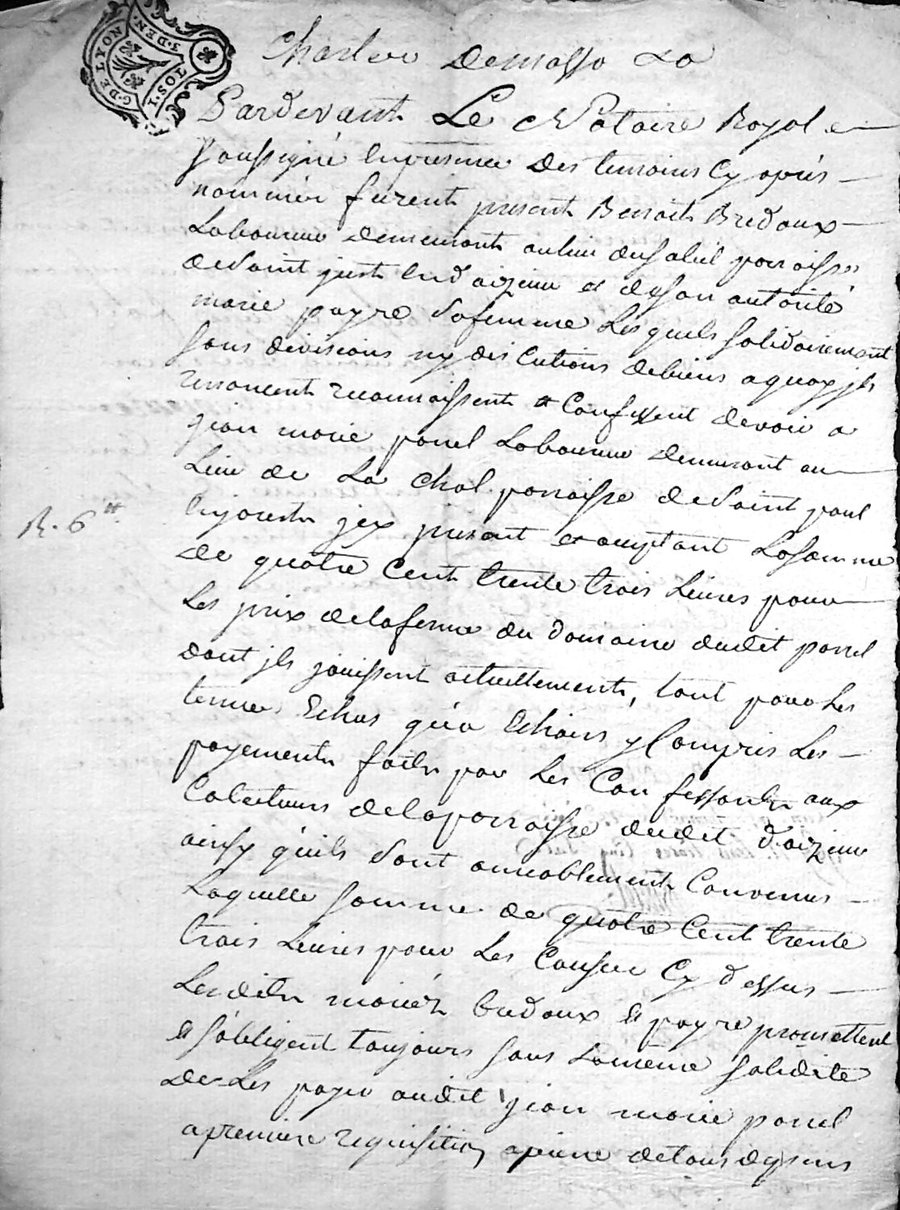 G. DE LYON
I. SOL
3. DEN.
Charles Demasso
Pardevant Le Notaire Royal
soussigné En presence des temoins Cy après
nommés furent present Benoit Bredoux
Laboureur demeurant au lieu du parroisse
de Saint just En d'oizieu et de son autorité
marie payre Sa femme Lesquels Solidairement
sans divisions ny discutions de biens a quoy jls
renoncent reconnaissent et Confessent devoir a
jean marie ponel Laboureur demeurant au
Lieu de La Chal parroisse de Saint paul
En jarest jcy present et acceptant La somme
de quatre Cent trente trois Livres pour
Les prix de la ferme du domaine dudit ponel
R. 6 tt
dont jls jouissent actuellement, tant pour Les
termes Echus qu'a Echoirs y Compris Les
payements faits par Les Confessants aux
Colecteurs de la parroisse dudit d'oizieu
ainsy qu'ils Sont amiablement Convenus
Laquelle somme de quatre Cent trente
trois Livres pour Les Causes Cy dessus
Lesdits mariés bredoux et payre promettent
et s'obligent toujours sous La meme solidité
de Les payer audit jean marie ponel
a premiere requisition a peine de tous depens